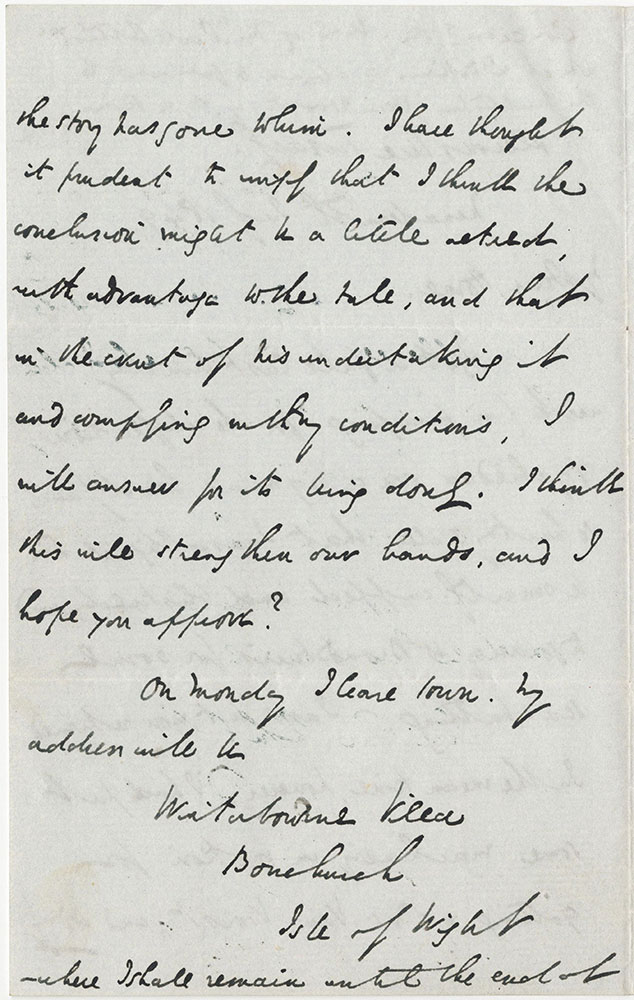 the story has gone to him. I have thought
it prudent to imply that I think the
conclusion might be a little altered,
with advantage to the tale, and that
in the event of his undertaking it
and complying with my conditions, I
will answer for its being done. I think
this will strengthen our hands, and I
hope you approve?
On Monday I leave town. My
address will be
Winterbourne Villa
Bonchurch
Isle of Wight
—where I shall remain until the end of